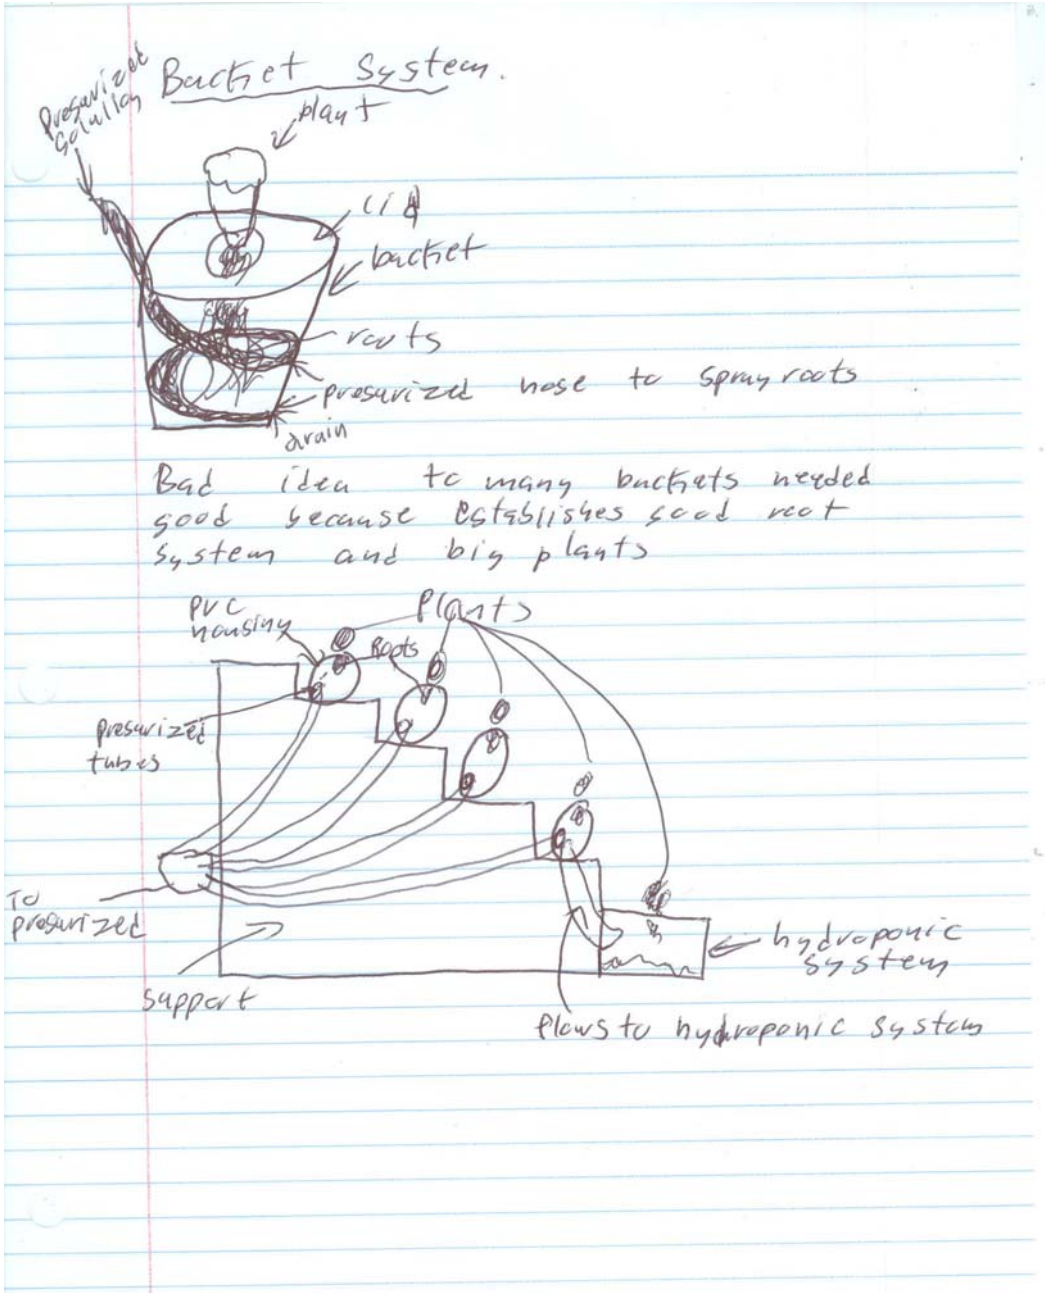 Bucket System.
Presurized
Solution
plant
lid
bucket
roots
presurized hose to spray roots
drain
Bad idea to many buckets needed
good because establishes good root
system and big plants
PVC
housing
Plants
Roots
presurized
tubes
To
presurized
hydroponic
system
support
flows to hydroponic system